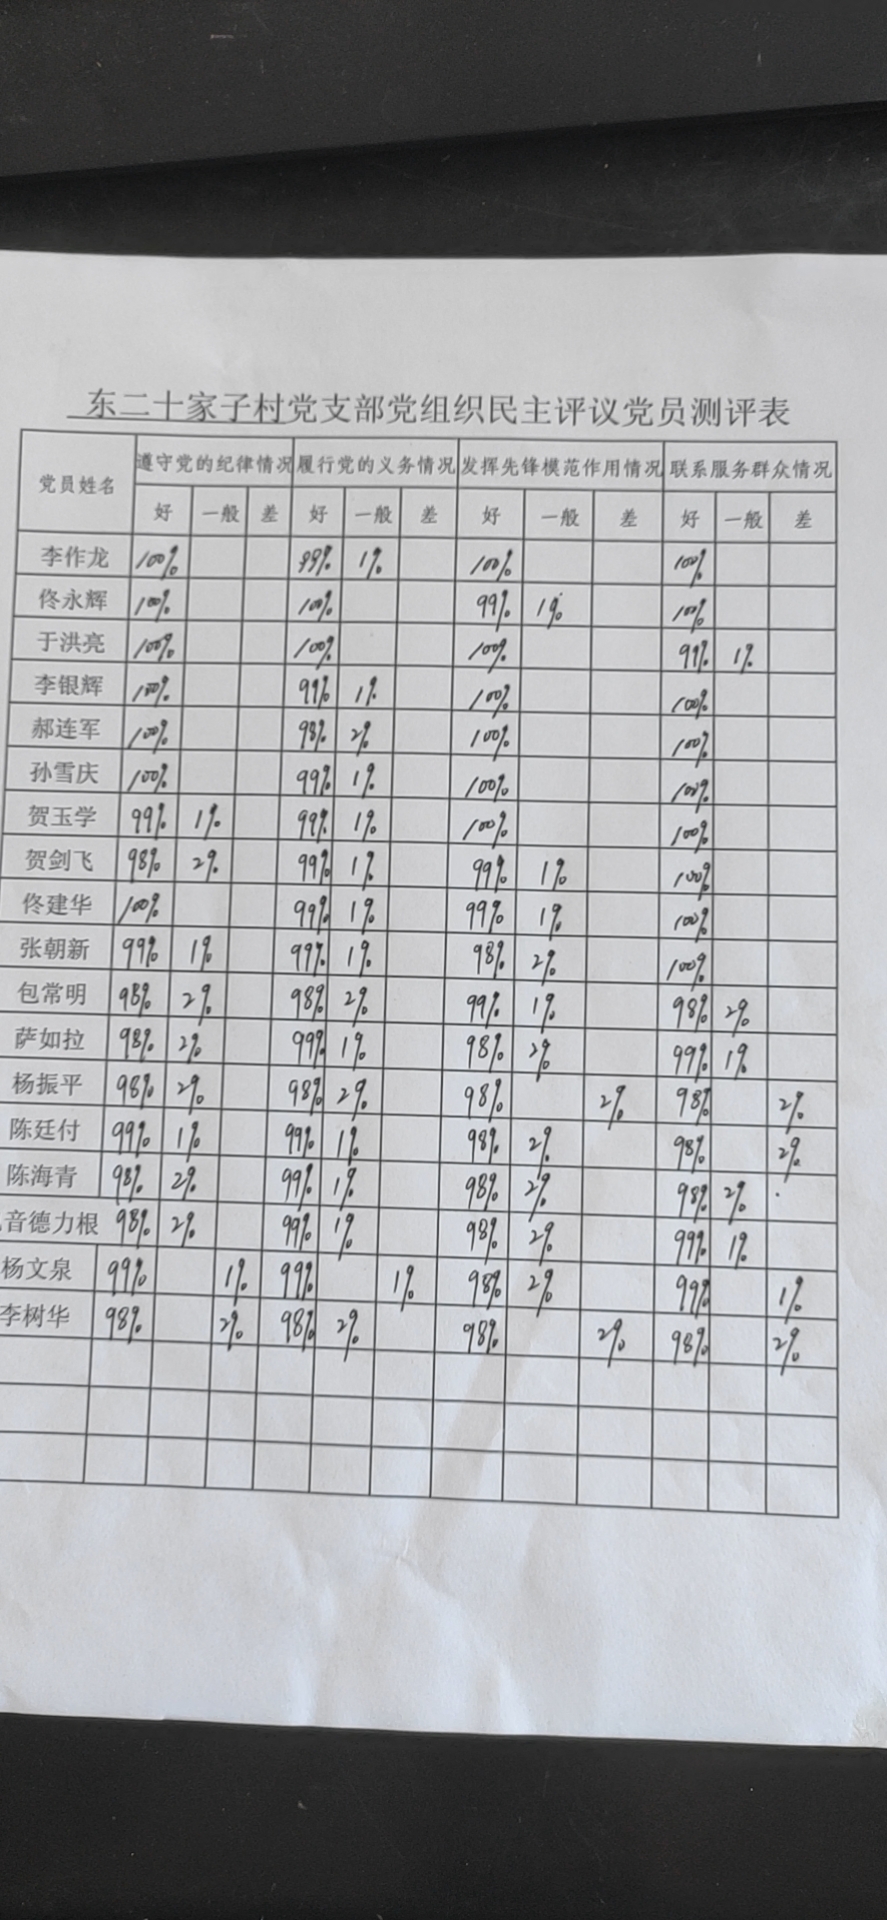 东二十家子村党支部党组织民主评议党员测评表
党员姓名 遵守党的纪律情况 履行党的义务情况 发挥先锋模范作用情况 联系服务群众情况
好 一般 差 好 一般 差 好 一般 差 好 一般 差
李作龙 100% 99% 1% 100% 100%
佟永辉 100% 100% 99% 1% 100%
于洪亮 100% 100% 100% 99% 1%
李银辉 100% 99% 1% 100% 100%
郝连军 100% 98% 2% 100% 100%
孙雪庆 100% 99% 1% 100% 100%
贺玉学 99% 1% 99% 1% 100% 100%
贺剑飞 98% 2% 99% 1% 99% 1% 100%
佟建华 100% 99% 1% 99% 1% 100%
张朝新 99% 1% 99% 1% 98% 2% 100%
包常明 98% 2% 98% 2% 99% 1% 98% 2%
萨如拉 98% 2% 99% 1% 98% 2% 99% 1%
杨振平 98% 2% 98% 2% 98% 2% 98% 2%
陈廷付 99% 1% 99% 1% 98% 2% 98% 2%
陈海青 98% 2% 99% 1% 98% 2% 98% 2%
音德力根 98% 2% 99% 1% 98% 2% 99% 1%
杨文泉 99% 1% 99% 1% 98% 2% 99% 1%
李树华 98% 2% 98% 2% 98% 2% 98% 2%